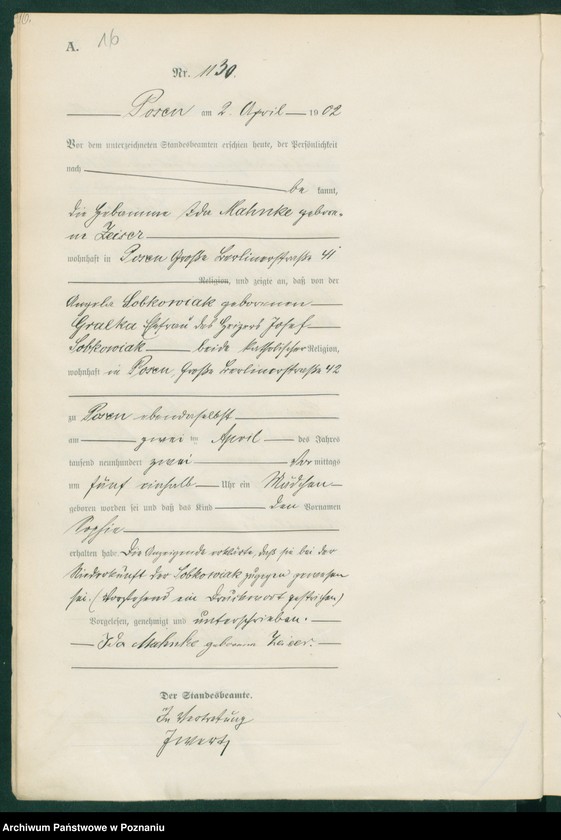 10.
A. 16
Nr. 1130.
Posen am 2. April 1902
Vor dem unterzeichneten Standesbeamten erschien heute, der Persönlichkeit
nach
be kannt,
die Hebamme Ida Mahnke gebore-
ne Zeiser
wohnhaft in Posen Große Berlinerstraße 41
Religion, und zeigte an, daß von der
Angela Sobkowiak geborenen
Gralka Ehefrau des Heizers Josef
Sobkowiak beide katholischer Religion,
wohnhaft in Posen, Große Berlinerstraße 42
zu Posen ebendaselbst
am zwei ten April des Jahres
tausend neunhundert zwei Vor mittags
um fünf einhalb Uhr ein Mädchen
geboren worden sei und daß das Kind den Vornamen
Sophie
erhalten habe. Die Anzeigende erklärte, daß sie bei der
Niederkunft der Sobkowiak zugegen gewesen
sei. (Vorstehend ein Druckwort gestrichen)
Vorgelesen, genehmigt und unterschrieben.
Ida Mahnke geborene Zeiser.
Der Standesbeamte.
In Vertretung
Archiwum Państwowe w Poznaniu